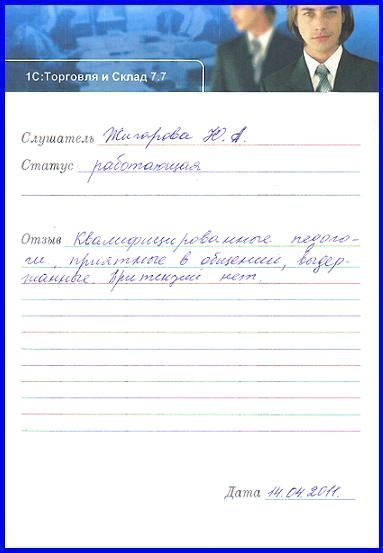 1С:Торговля и Склад 7.7
Слушатель Жигарова Ю. А.
Статус работающая
Отзыв Квалифицированные педаго-
ги, приятные в общении, выдер-
жанные. Притензий нет.
Дата 14.04.2011.